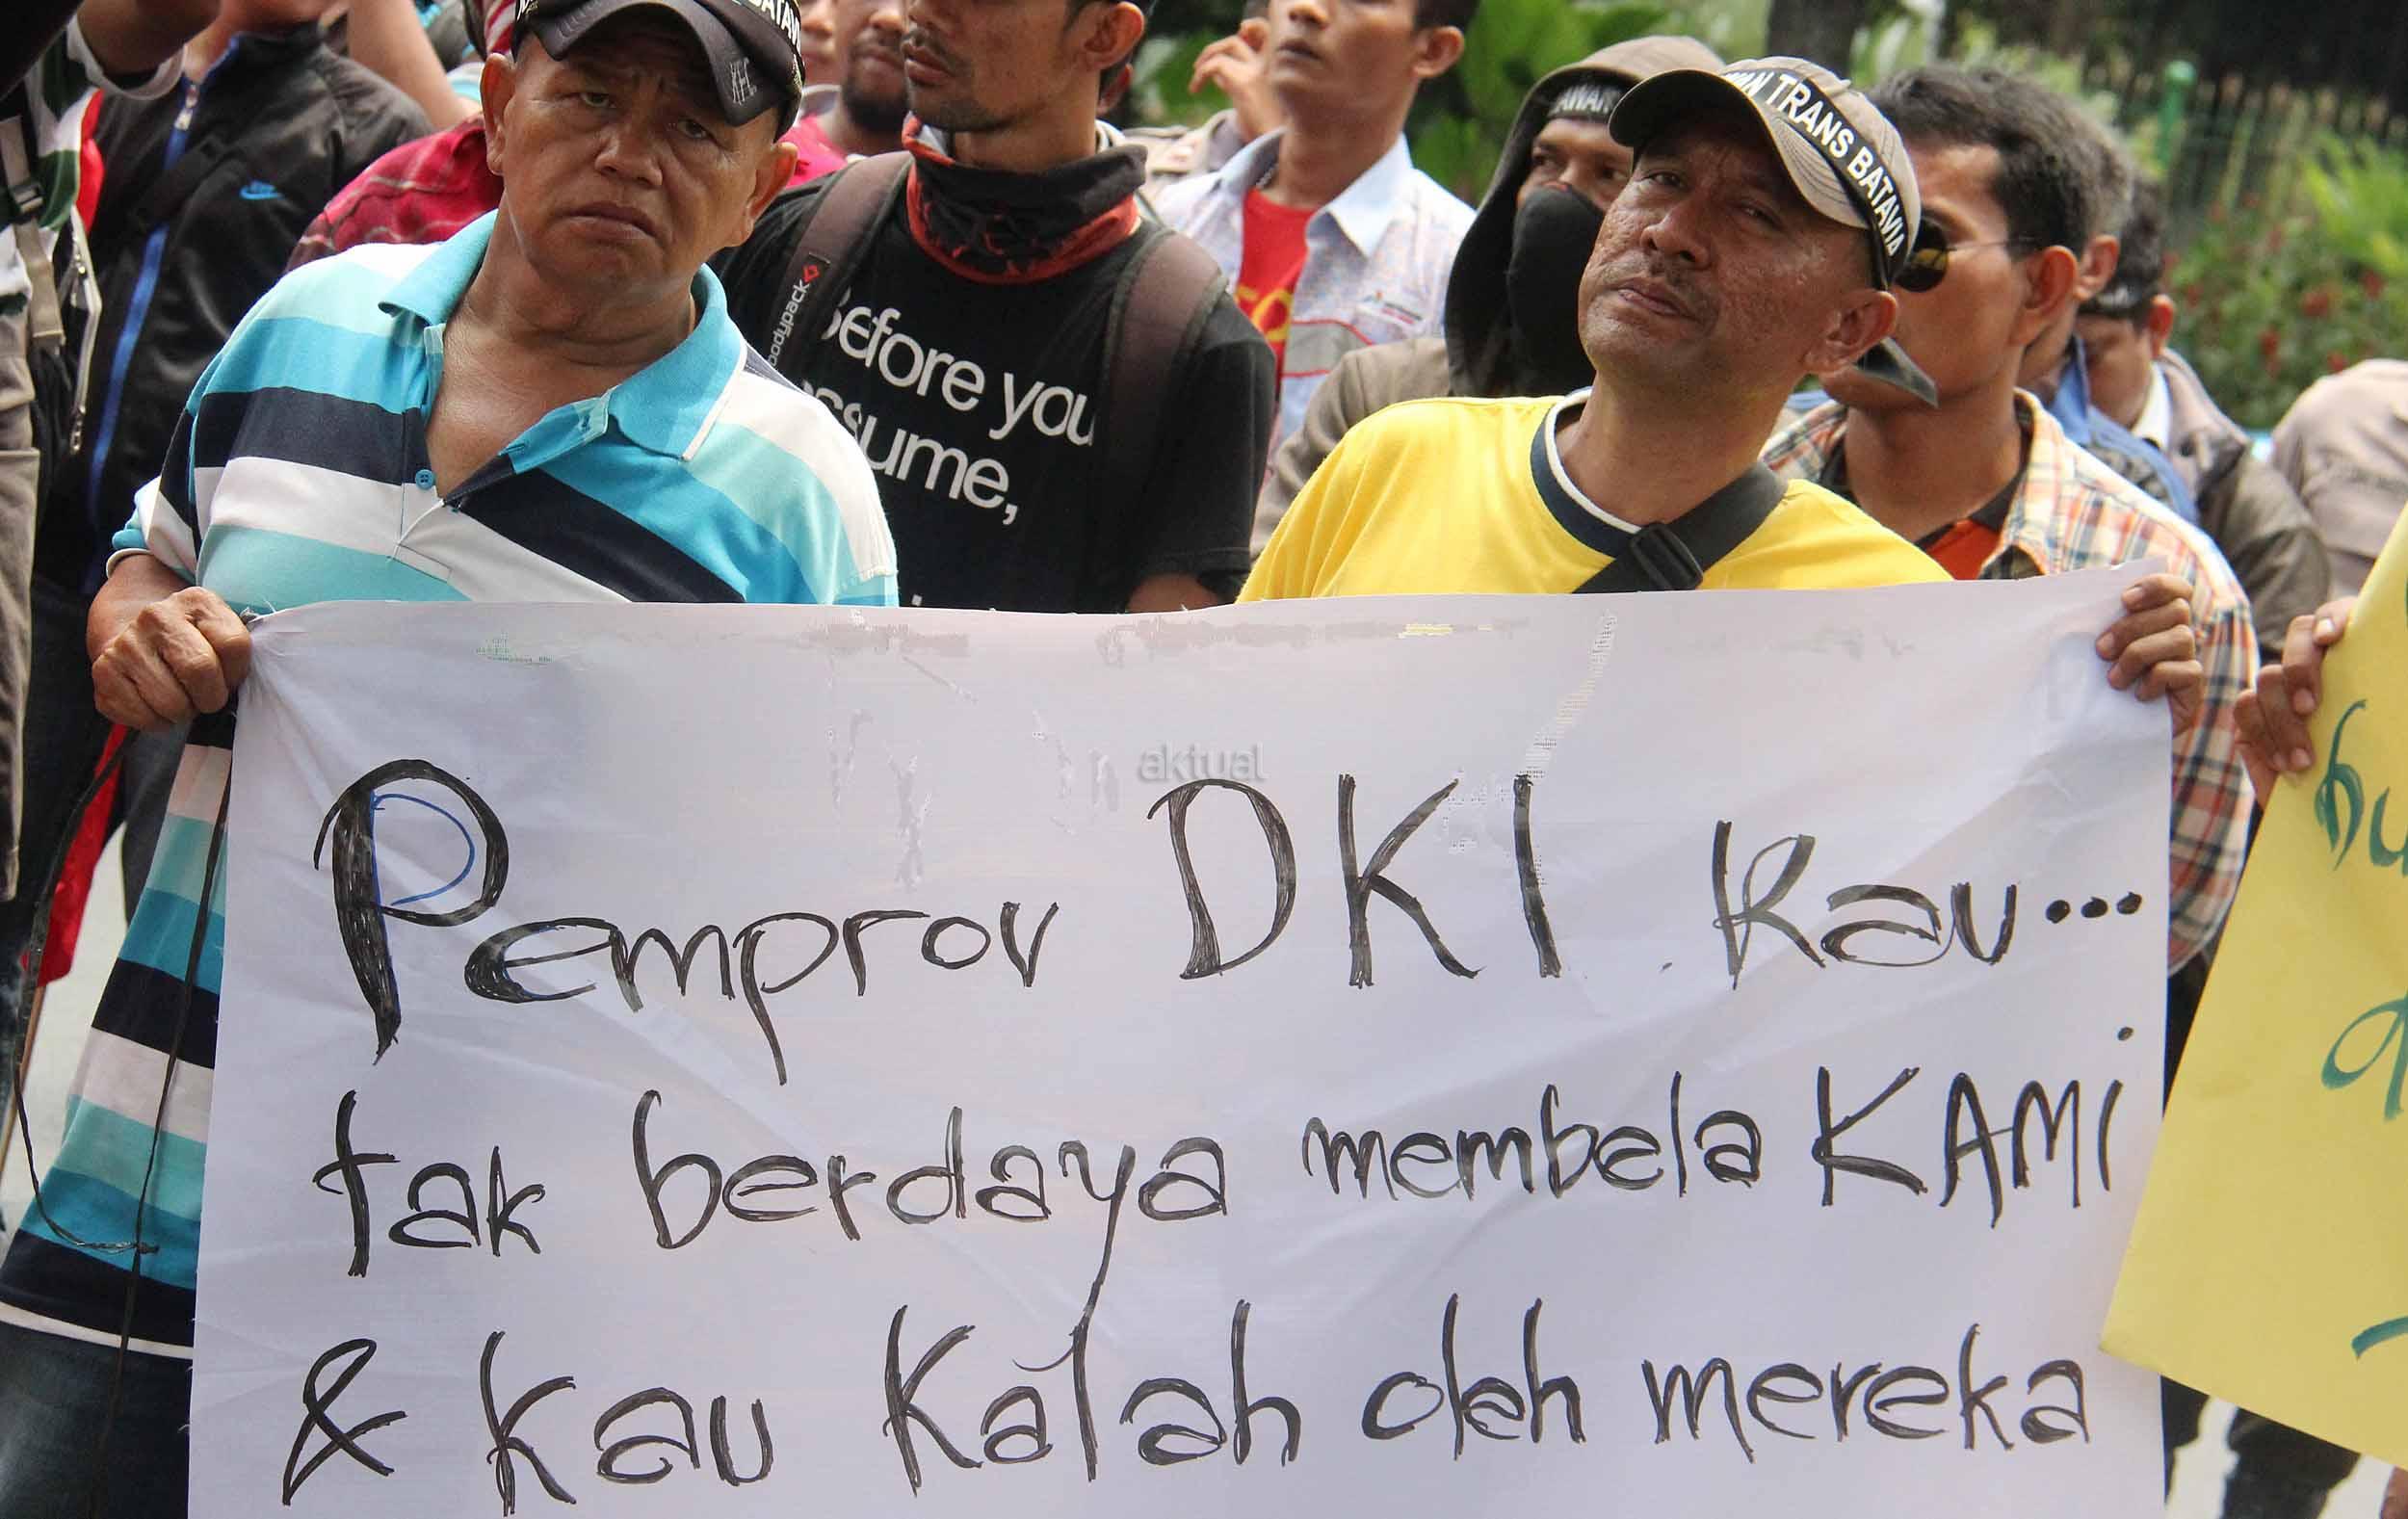 BATAVIA
TRANS BATAVIA
bodypack
Before you
assume,
aktual
Pemprov DKI. Kau...
tak berdaya membela KAMi
& kau Kalah oleh mereka